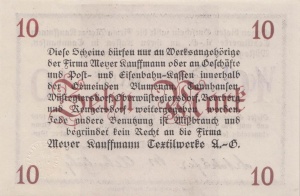 10 10
Diese Scheine dürfen nur an Werksangehörige
der Firma Meyer Kauffmann oder an Geschäfte
und Post- und Eisenbahn-Kassen innerhalb
der Gemeinden Blumenau, Tannhausen,
Wüstegiersdorf,
weitergegeben werden.
Jede andere Benutzung ist Mißbrauch und
begründet kein Recht an die Firma
Meyer Kauffmann Textilwerke A.-G.
Zehn Mark
10 10